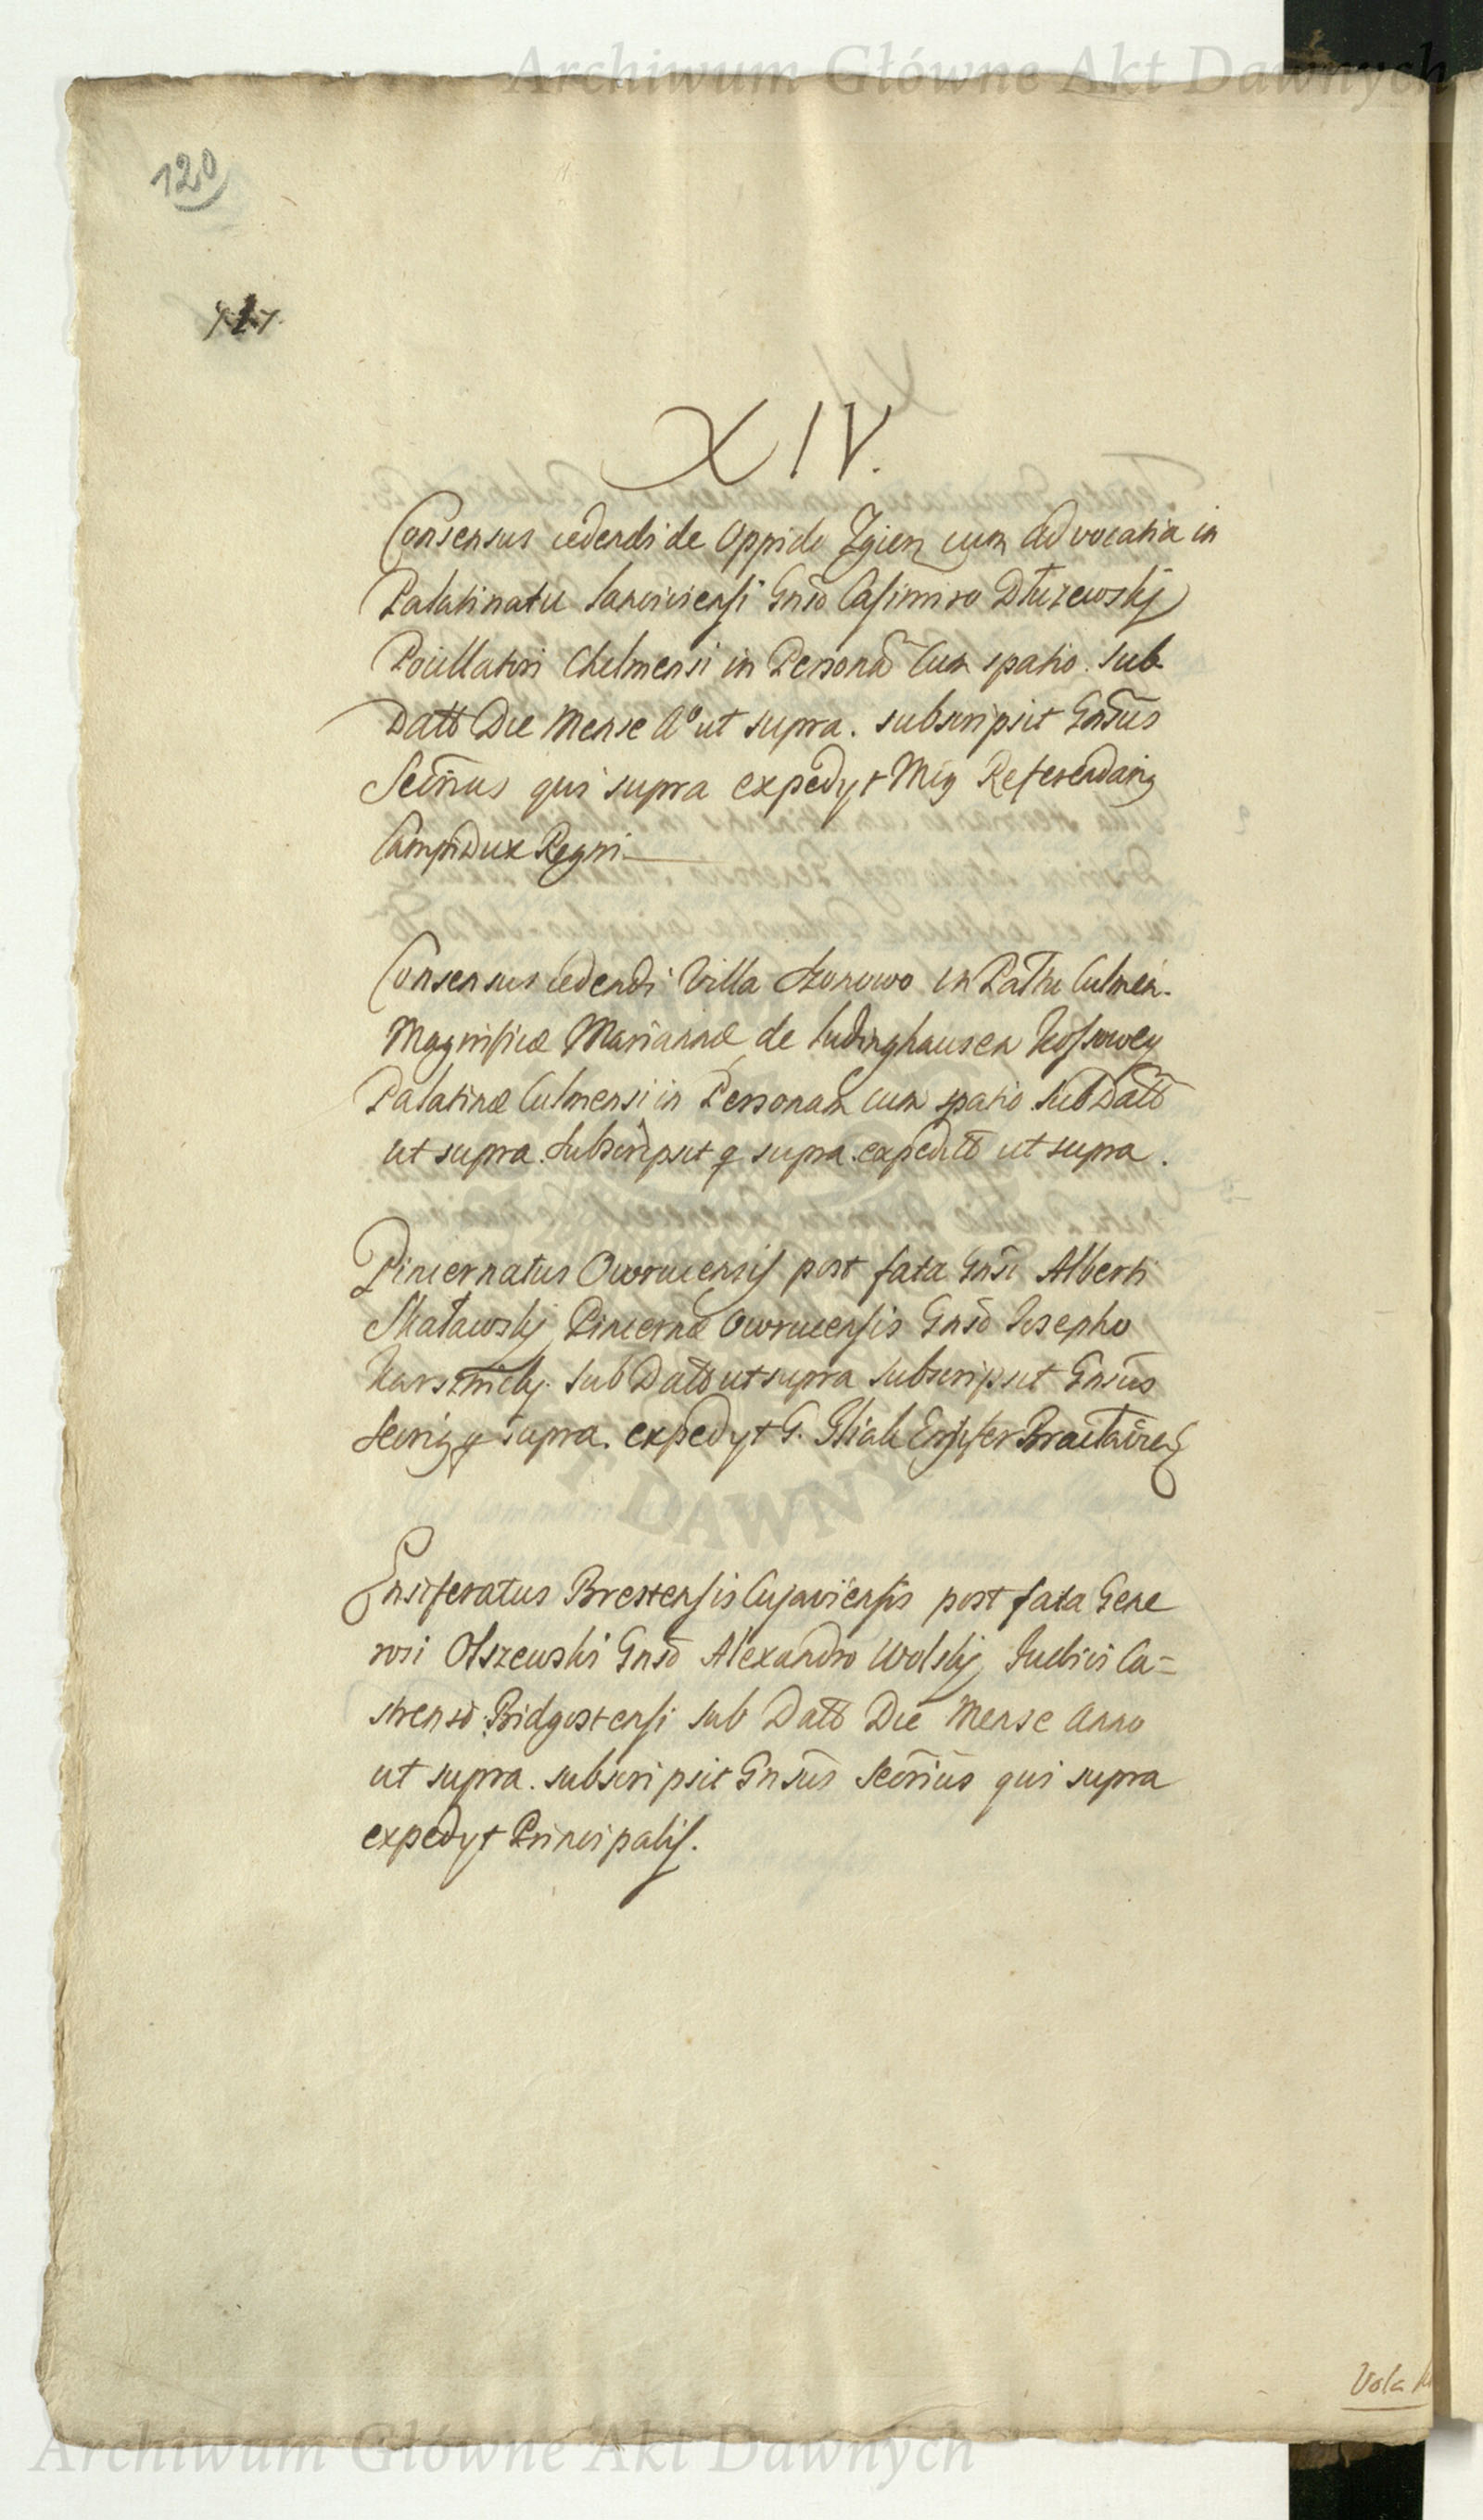 Archiwum Główne Akt Dawnych
120
XIV.
Consensus cedendi de Oppido Zgierz cum advocatia in
Palatinatu Lanciciensi Gnso Casimiro Dłuzewskj
Pocillatori Chelmensi in Personā cum spatio. Sub
Datt Die Mense Aº ut supra. subscripsit Gnsus
Secrius qui supra expedyt Mig Referendariq
Campidux Regni
Consensus cedendi Villa Szonowo in Pattu Culmen.
Magnificæ Mariannæ de Ludinghausen Kossowey
Palatinæ Culmensi in Personam cum spatio. Sub Datt
ut supra. Subscripsit q supra. expeditt ut supra.
Pincernatus Owrucensis post fata Gnsi Alberti
Skatawskj Pincernæ Owrucensis Gnso Josepho
Karsznickj. Sub Datt ut supra subscripsit Gnsus
Secriq q supra. expedyt G. Ensifer
Ensiferatus Brestensis Cujaviensis post fata Gene
rosi Olszewski Gnso Alexandro Wolskj Judici Ca=
strensi Bidgostensi sub Datt Die Mense Anno
ut supra. subscripsit Gnsus Secrius qui supra
expedyt Principalis.
Vola
DAWNY
Archiwum Główne Akt Dawnych